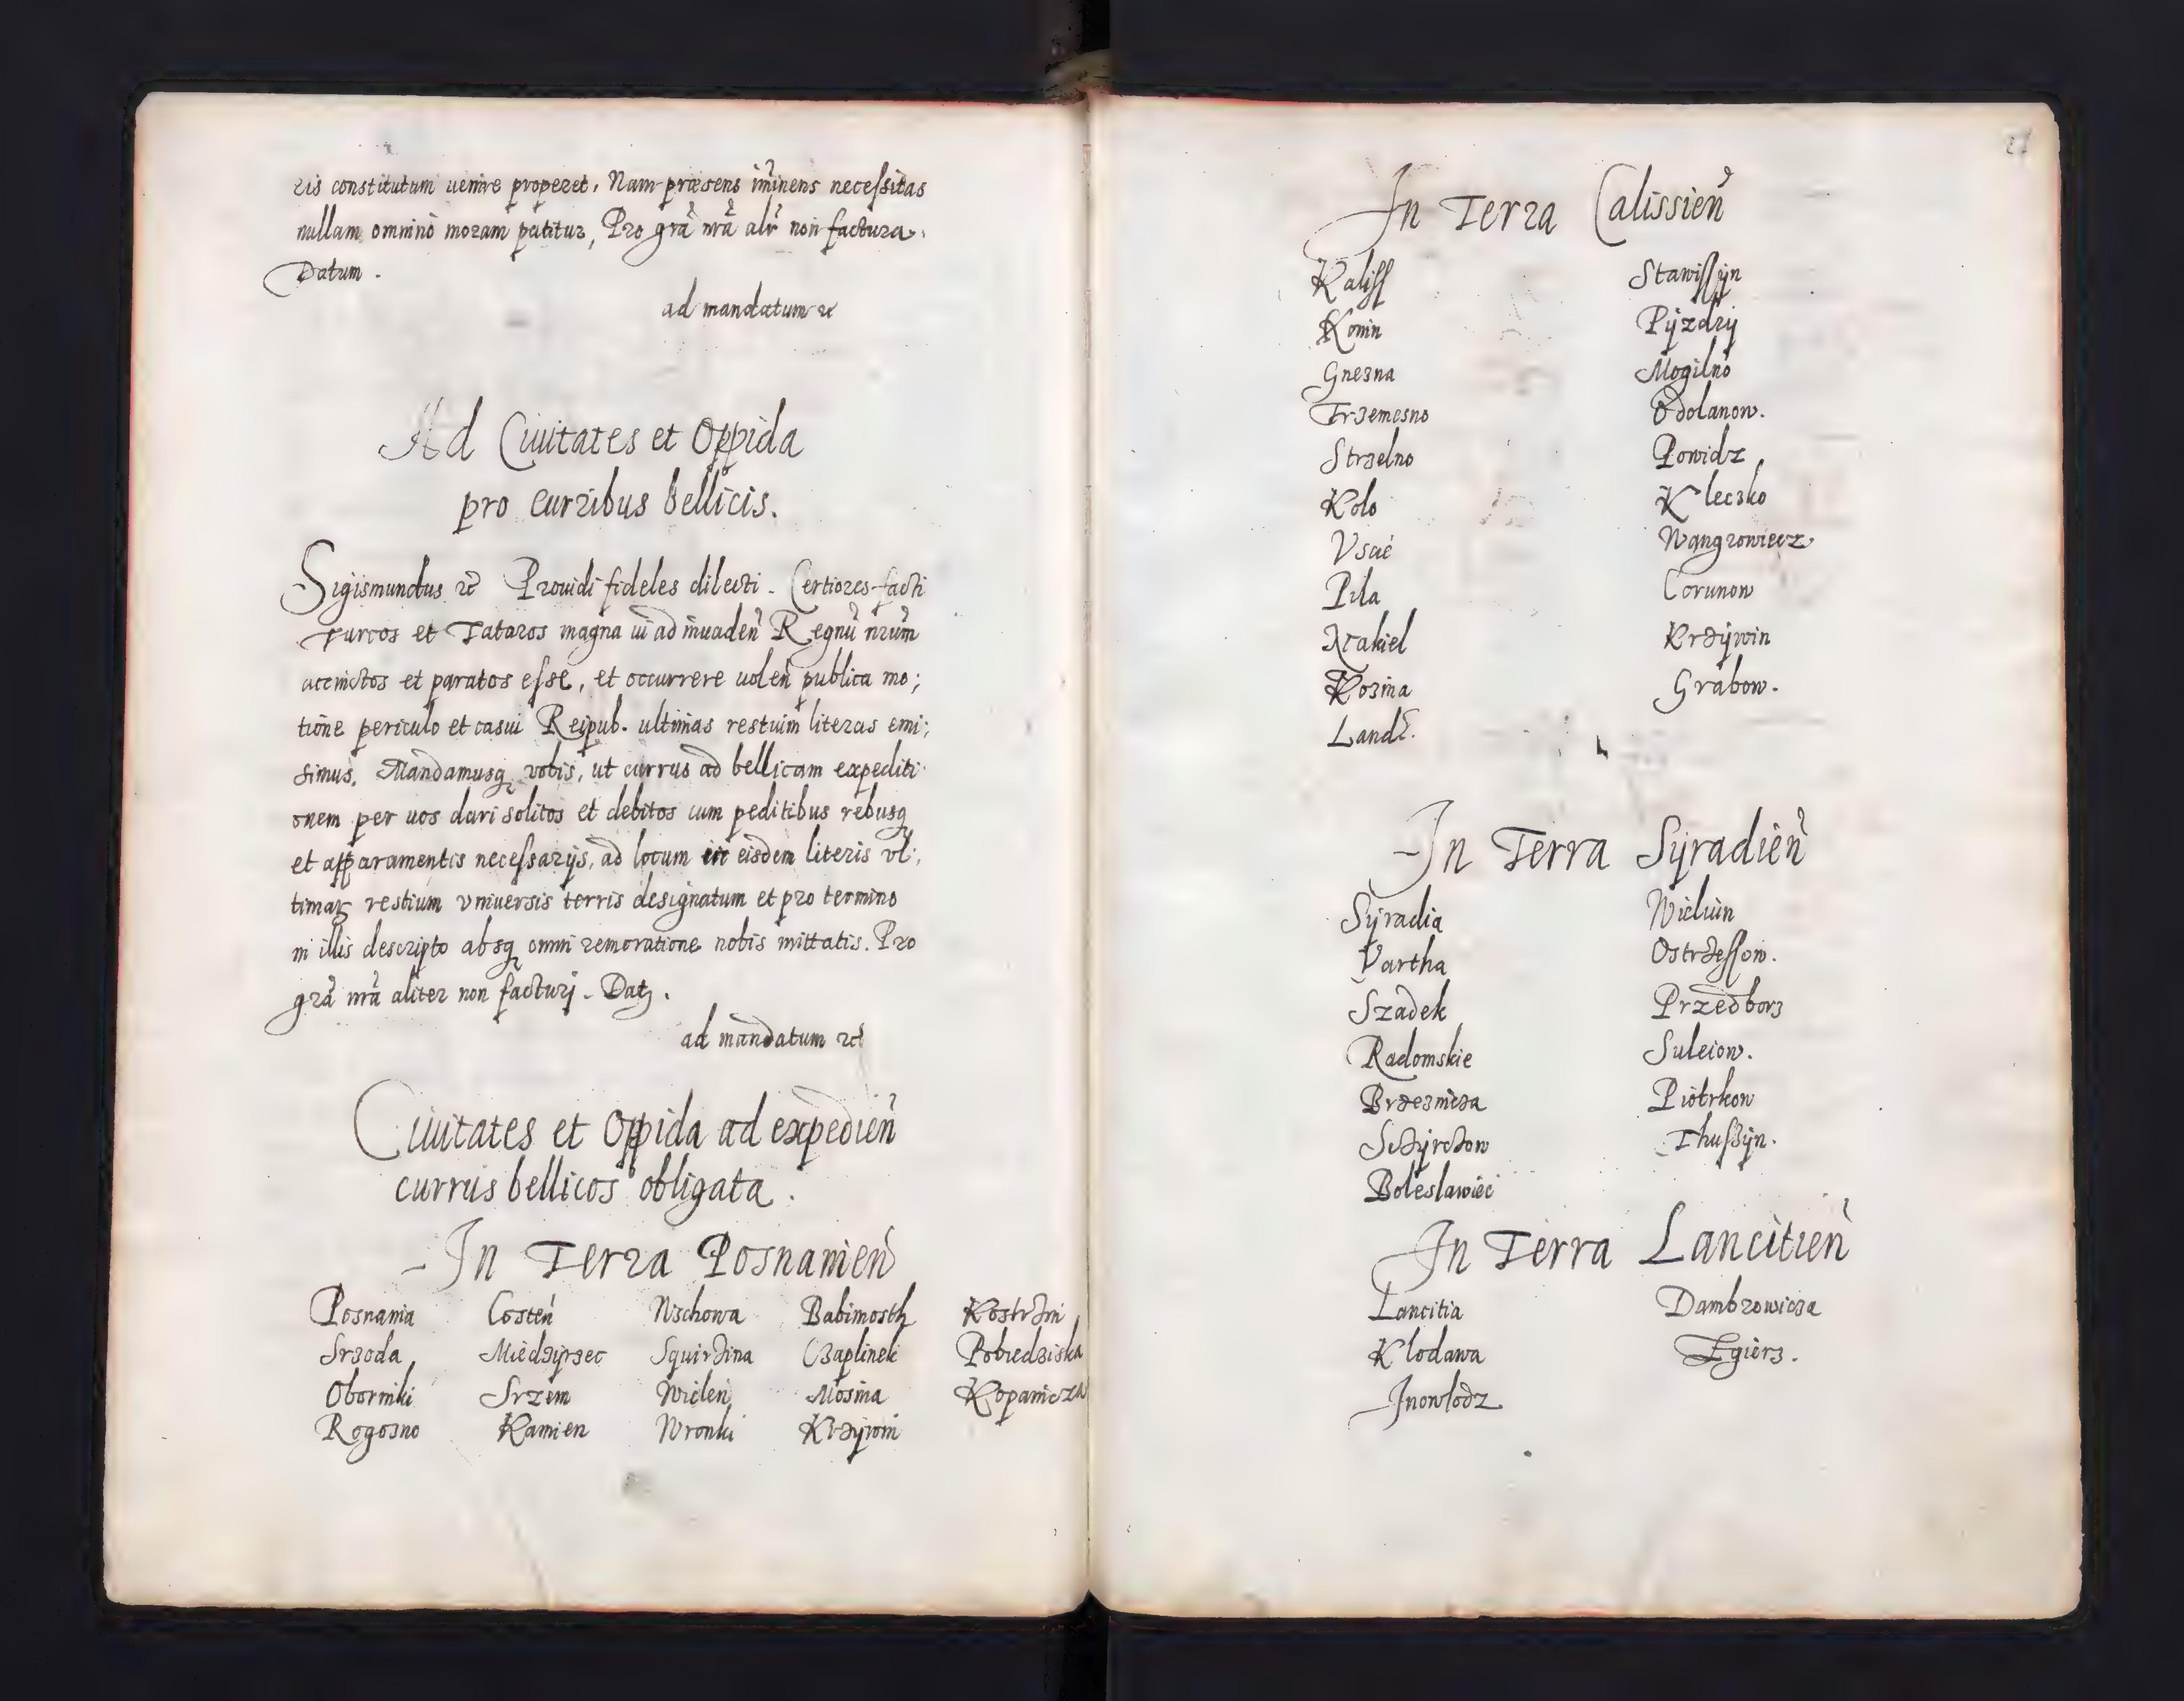 ris constitutum uenire properet, Nam præsens im̃inens necessitas
nullam omnino moram patitur, Pro grã nrã alr̃ non factura.
Datum.
ad mandatum &
Ad Ciuitates et Oppida
pro curribus bellicis.
Sigismundus &c̃ Prouidi fideles dilecti. Certiores facti
Turcos et Tataros magna ui ad inuadeñ Regnũ nrũm
accinctos et paratos esse, et occurrere uoleñ publica mo;
tione periculo et casui Reipub. ultimas restium literas emi;
simus. Mandamusq; vobis, ut currus ad bellicam expediti
onem per uos dari solitos et debitos cum peditibus rebusq;
et apparamentis necessarijs, ad locum eisdem literis vl;
timar̃ restium vniuersis terris designatum et pro termino
in illis descripto absq; omni remoratione nobis mittatis. Pro
grã nrã aliter non facturj. Datz.
ad mandatum &c̃
Ciuitates et Oppida ad expedieñ
currus bellicos obligata.
In Terra Posnanieñ
Posnania Costeñ Wschowa Babimosth Kostrzin
Srzoda Miedzijrzec Squirzina Czaplinek Pobiedziska
Oborniki Srzem Wielen Mosina Kopanicza
Rogozno Kamien Wronki Krzijwin
21
In Terra Calissieñ
Kaliss Stawissijn
Konin Pijzdrij
Gnezna Mogilno
Trzemesno Odolanow.
Strzelno Powidz
Kolo Kleczko
Vscie Wangrowiecz
Pila Corunow
Nakiel Krzijwin
Kozina Grabow.
Land.
In Terra Sijradieñ
Sijradia Wieluin
Vartha Ostrzessow.
Szadek Przedborz
Radomskie Suleiow.
Brzeznicza Piotrkow
Sczijrczow Thuszijn.
Boleslawiec
In Terra Lancitieñ
Lancitia Dambrowicza
Klodawa Zgierz.
Inowlodz